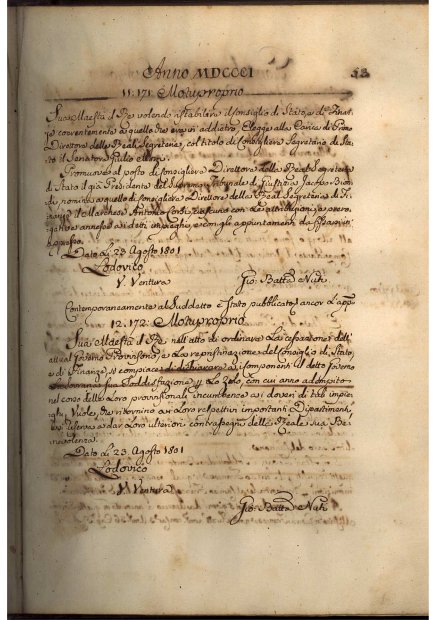 Anno MDCCCI
53
11. 171. Motuproprio
Sua Maestà il Re volendo ristabilire il Consiglio di Stato, e di Finan
ze coerentemente a quello che era in addietro, elegge alla Carica di Primo
Direttore delle Reali Segreterie, col titolo di Consigliere Segretario di Sta
to il Senatore Giulio
Promuove al posto di Consigliere Direttore della Real Segreteria
di Stato il già Presidente del Supremo Tribunale di Giustizia Jacopo Bion
di, nomina a quello di Consigliere Direttore della Real Segreteria di Fi
nanze il Marchese Antonio Corsi, ciascuno con le attribuzioni, e prero
gative annesse ai detti impieghi, e con gli appuntamenti da fissarsi in
appresso.
Dato li 23. Agosto 1801
Lodovico
V. Ventura
Gio. Batta Nuti
Contemporaneamente al suddetto è stato pubblicato ancor l'app.
12. 172. Motuproprio
Sua Maestà il Re nell'atto di ordinare la cessazione dell'
attual Governo Provvisorio, e la repristinazione del Consiglio di Stato,
e di Finanze, si compiace di dichiarare ai componenti il detto Governo
la sovrana sua soddisfazione per lo zelo, con cui anno adempito
nel corso delle loro provvisionali incumbenze ai doveri di tali impie
ghi, Vuole, che ritornino ai loro respettivi importanti Dipartimenti,
e si riserva a dar loro ulteriori contrassegni della Reale sua Be
nevolenza.
Dato li 23. Agosto 1801
Lodovico
V. Ventura
Gio. Batta Nuti